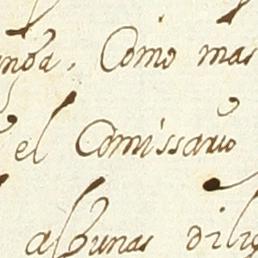 Como mas
el Comissario
algunas dilig